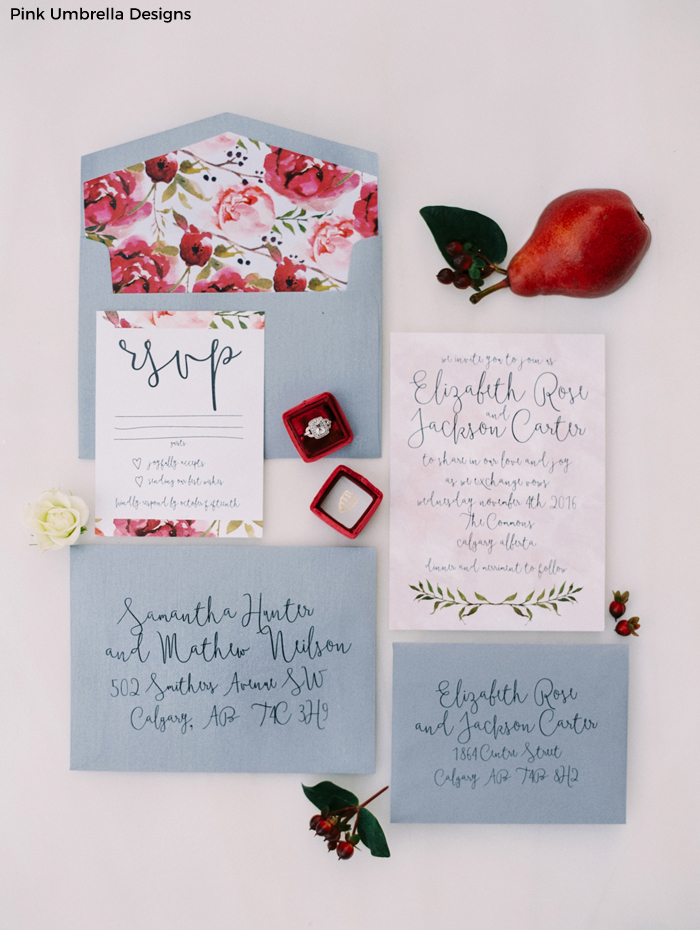 Pink Umbrella Designs
rsvp
joyfully accepts
sending our best wishes
kindly respond by october fifteenth
we invite you to join us
Elizabeth Rose
and
Jackson Carter
to share in our love and joy
as we exchange vows
wednesday november 4th 2016
The Commons
calgary alberta
dinner and merriment to follow
Samantha Hunter
and Mathew Neilson
502 Smithers Avenue SW
Calgary, AB T4C 3H9
Elizabeth Rose
and Jackson Carter
1864 Centre Street
Calgary AB T4B 8H2